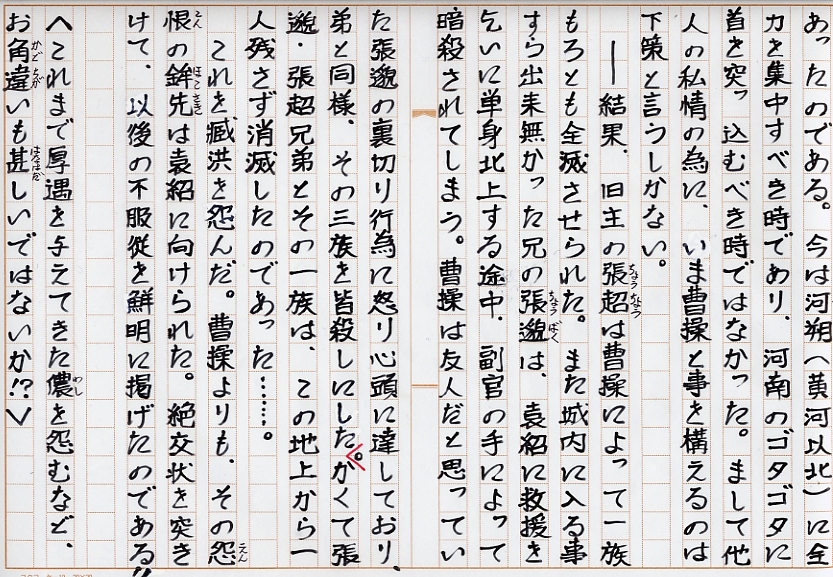 あったのである。今は河朔へ黄河以北)に全
力を集中すべき時であり、河南のゴタゴタに
首を突っ込むべき時ではなかった。まして他
人の私情の為に、いま曹操と事を構えるのは
下策と言うしかない。
――結果、旧主の張超は曹操によって一族
もろとも全滅させられた。また城内に入る事
すら出来無かった兄の張邈は、袁紹に救援を
乞いに単身北上する途中、副官の手によって
暗殺されてしまう。曹操は友人だと思ってい
た張邈の裏切り行為に怒り心頭に達しており、
弟と同様、その三族を皆殺しにした。かくて張
邈・張超兄弟とその一族は、この地上から一
人残さず消滅したのであった……。
これを臧洪を怨んだ。曹操よりも、その怨
恨の鉾先は袁紹に向けられた。絶交状を突き
けて、以後の不服従を鮮明に掲げたのである!!
へこれまで厚遇を与えてきた儂を怨むなど、
お角違いも甚しいではないか!?＞